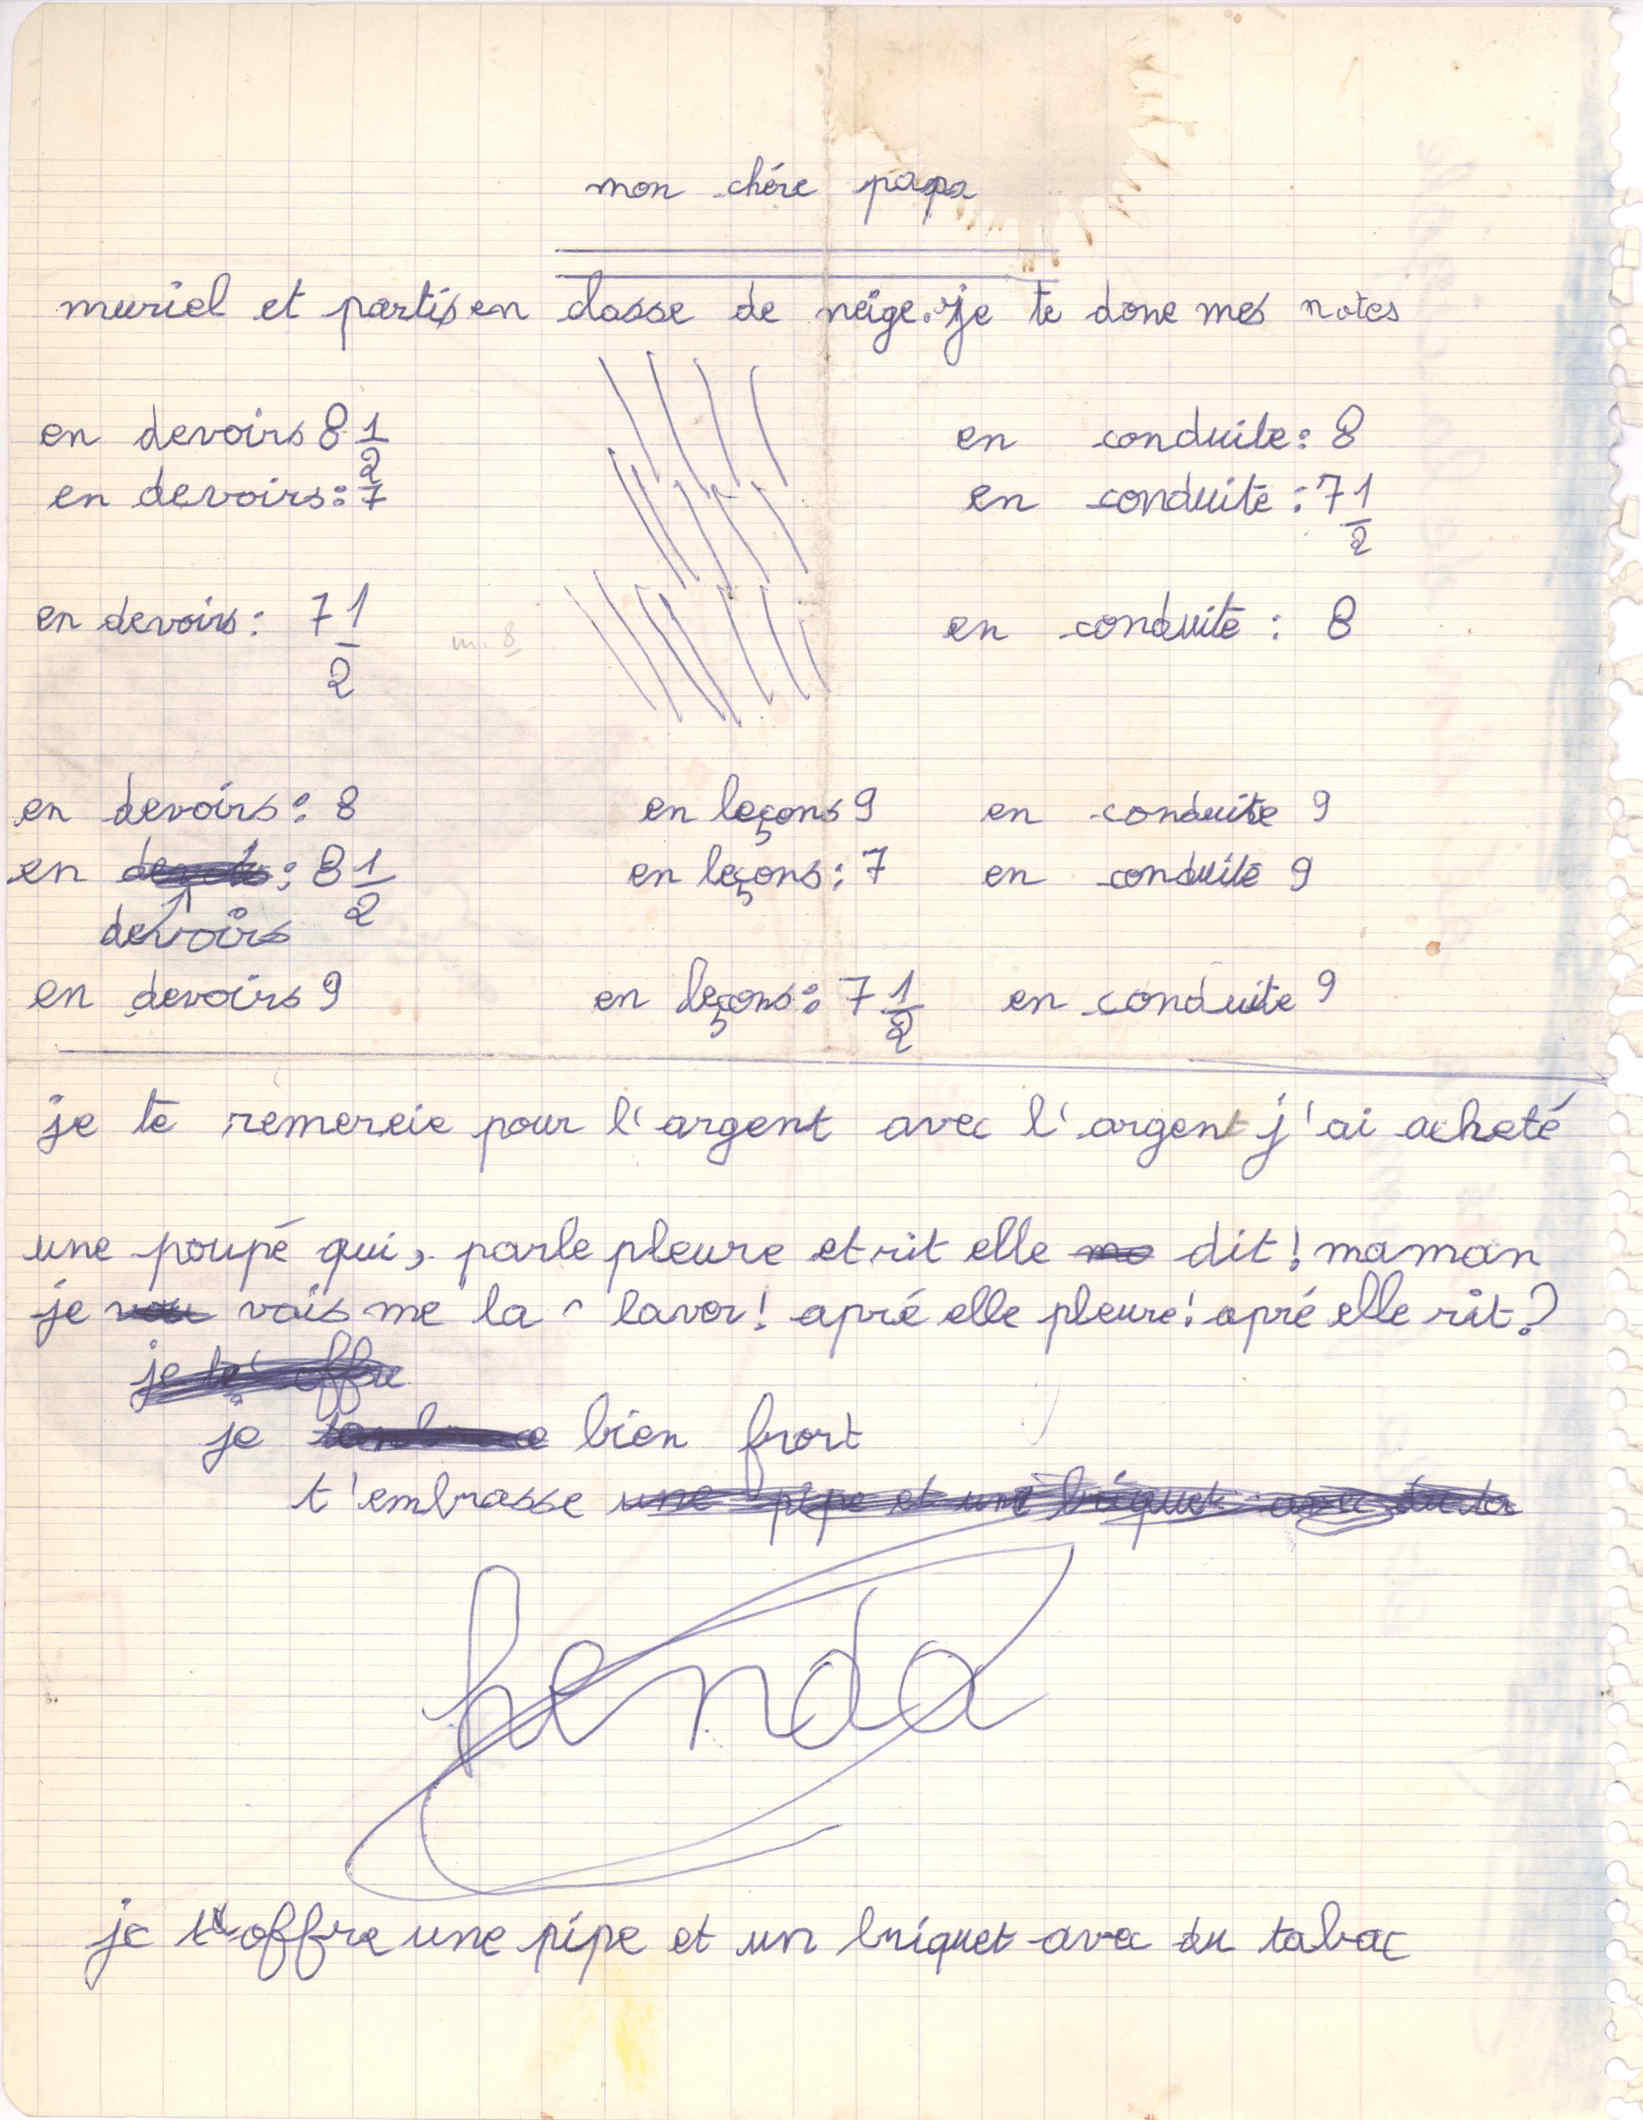 mon chére papa
muriel et partis en classe de neige. je te done mes notes
en devoirs 8 1/2 en conduite : 8
en devoirs : 7 en conduite : 7 1/2
en devoirs : 7 1/2 en conduite : 8
en devoirs : 8 en leçons 9 en conduite 9
en : 8 1/2 en leçons : 7 en conduite 9
devoirs
en devoirs 9 en leçons : 7 1/2 en conduite 9
je te remereie pour l'argent avec l'argent j'ai acheté
une poupé qui, parle pleure et rit elle dit ! maman
je vais me la laver ! apré elle pleure ! apré elle rit ?
je te offre
je bien frort
t'embrasse une pipe et une briquet avec du ta
je t'offre une pipe et un briquet avec du tabac